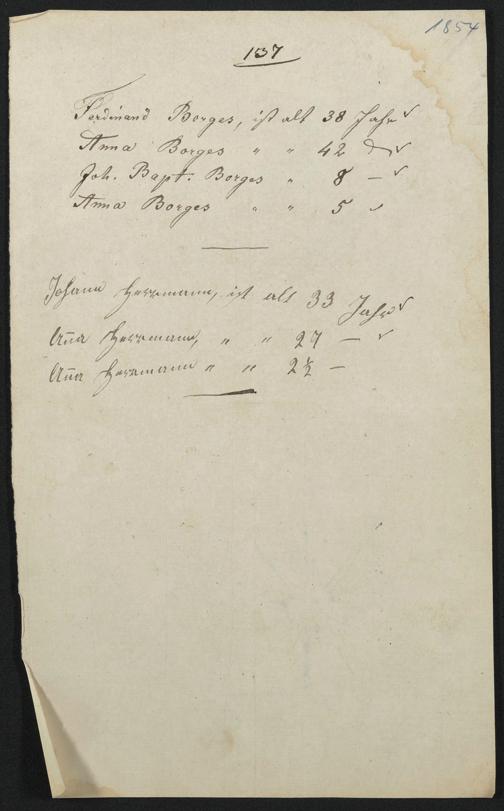 1854
137
Ferdinand Borges, ist alt 38 Jahr
Anna Borges " " 42 do
Joh. Bapt. Borges " 8 —
Anna Borges " " 5
Johann Herrmann, ist alt 33 Jahr
Anna Herrmann, " " 27 —
Anna Herrmann " " 2½ —